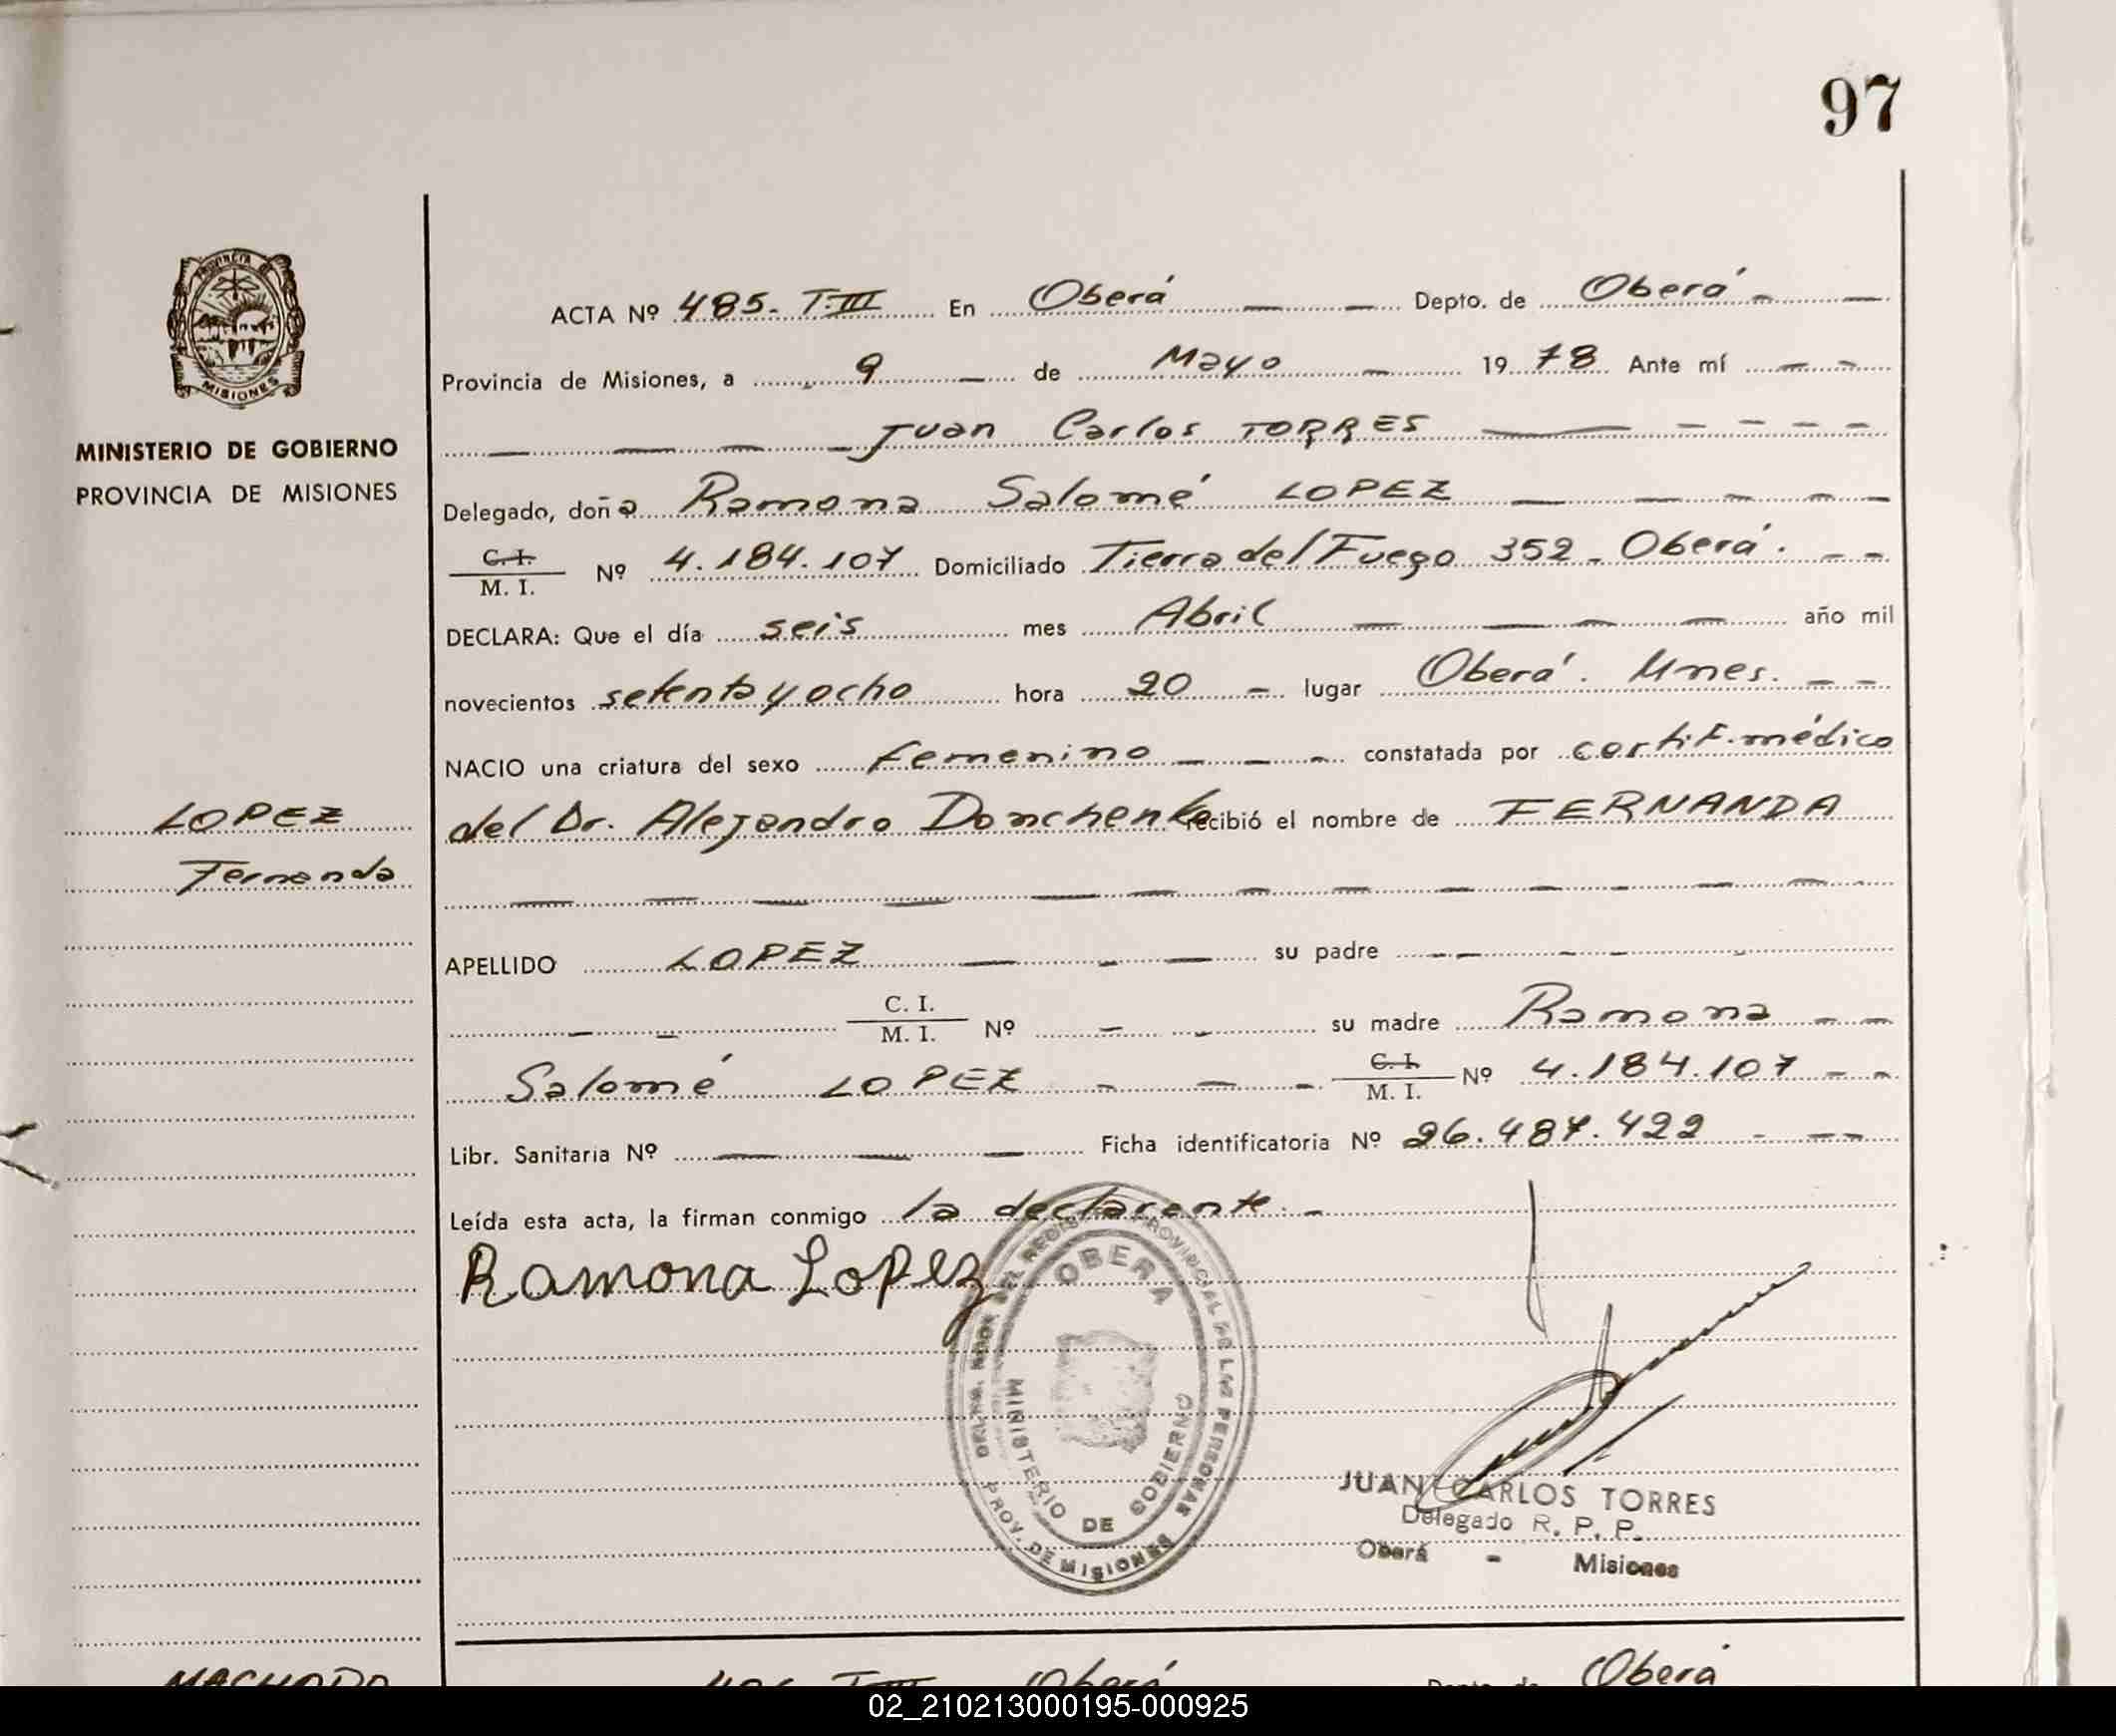 97
PROVINCIA DE
MISIONES
MINISTERIO DE GOBIERNO
PROVINCIA DE MISIONES
LOPEZ
Fernanda
ACTA Nº 485- T.III En Oberá Depto. de Oberá
Provincia de Misiones, a 9 de Mayo 1978 Ante mí
Juan Carlos TORRES
Delegado, doña Ramona Salomé LOPEZ
C. I.
M. I. Nº 4.184.107 Domiciliado Tierra del Fuego 352 - Oberá.
DECLARA: Que el día seis mes Abril año mil
novecientos setenta y ocho hora 20 lugar Oberá. Mnes.
NACIO una criatura del sexo femenino constatada por certif. médico
del Dr. Alejandro Donchenko recibió el nombre de FERNANDA
APELLIDO LOPEZ su padre
C. I.
M. I. Nº su madre Ramona
Salomé LOPEZ C. I.
M. I. Nº 4.184.107
Libr. Sanitaria Nº Ficha identificatoria Nº 26.487.422
Leída esta acta, la firman conmigo la declarante.
Ramona Lopez
REGISTRO PROVINCIAL DE LAS PERSONAS
OBERA
MINISTERIO DE GOBIERNO
PROV. DE MISIONES
JUAN CARLOS TORRES
Delegado R. P. P.
Oberá - Misiones
MACHADO
486 T.III Oberá Depto. de Oberá
02_210213000195-000925